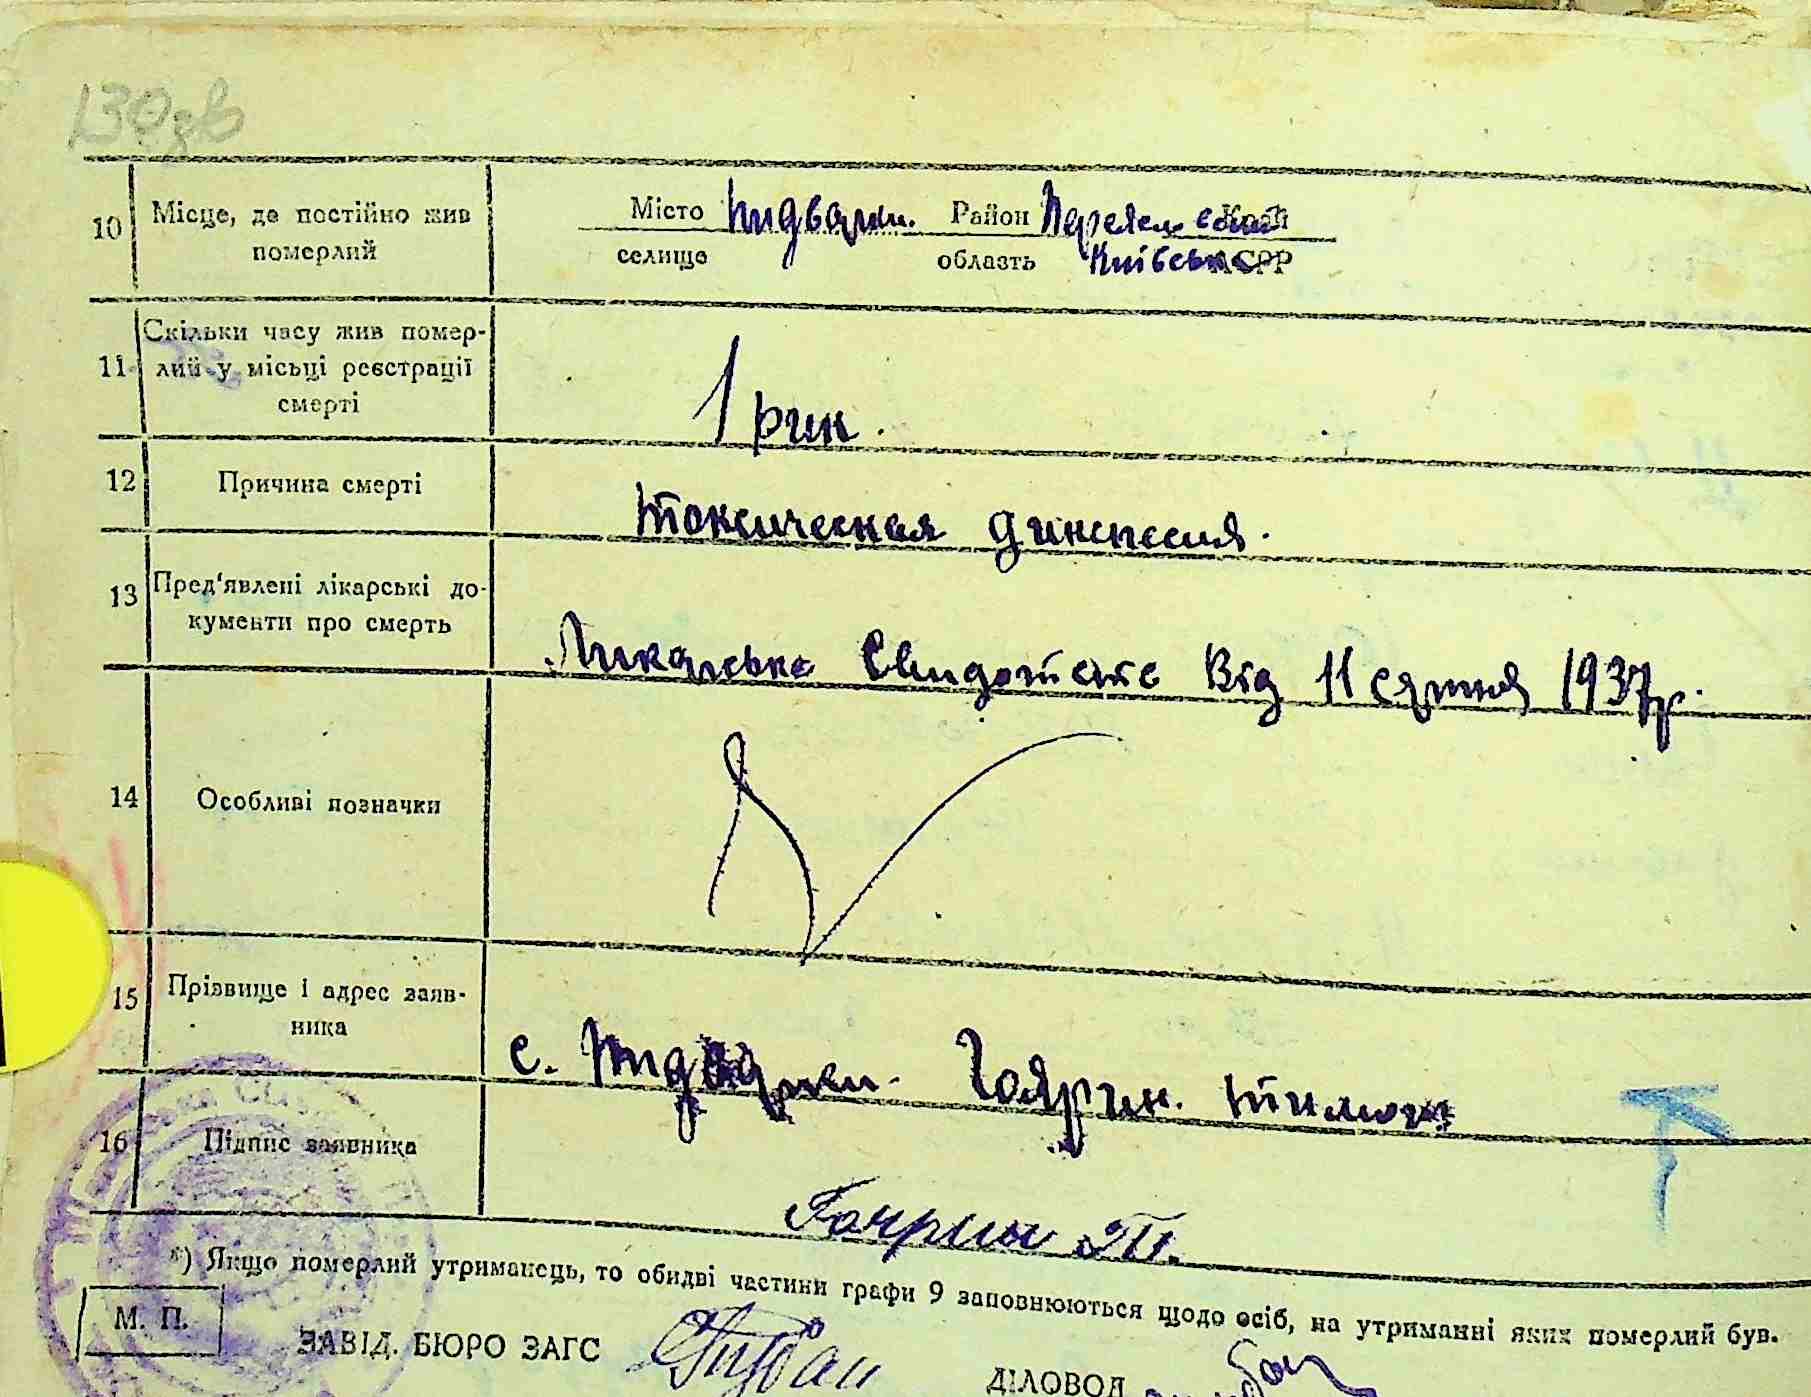 130зв
10 Місце, де постійно жив
померлий
Місто Підварки. Район Переяславський
селище область Київська СРР
11 Скільки часу жив помер-
лий у місьці реєстрації
смерті
1 рик.
12 Причина смерті
Токсическая
13 Пред'явлені лікарські до-
кументи про смерть
Ликарське Від 11 серпня 1937р.
14 Особливі позначки
15 Прізвище і адрес заяв-
ника
с. Підварки. Гоярин. Тимоги
16 Підпис заявника
Т.
*) Якщо померлий утриманець, то обидві частини графи 9 заповнюються щодо осіб, на утриманні яких померлий був.
М. П.
ЗАВІД. БЮРО ЗАГС
ДІЛОВОД